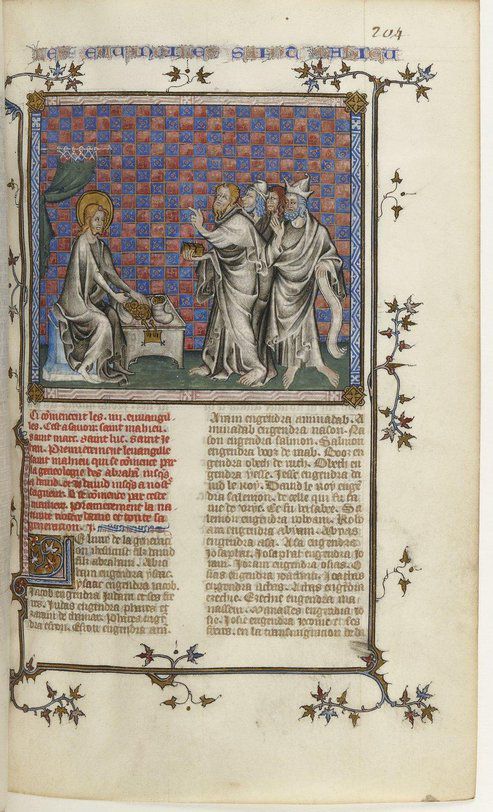 204
LES EVUANGILES SAINT MAHIEU
Ci commencent les .iiii. euuangil
les. Cest asauoir saint mahieu.
saint marc. saint luc. saint je
han. Premierement leuuangile
saint mahieu qui se commence par
la genealogie des abraham iusqs
a dauid. et de dauid iusqs a nost
Premierement la na
generacion. i.
e liure de la generaci
on ihesucrist filz dauid
filz abraham. Abra
ham engendra ysaac.
ysaac engendra iacob.
Jacob engendra Judam et ses fre
res. Judas engendra phares et
zaram de thamar. Phares engen
dra esrom. Esrom engendra aram
Aram engendra aminadab. A
minadab engendra nason. Na
son engendra salmon. Salmon
engendra booz de raab. Booz en
gendra obeth de ruth. Obeth en
gendra yesse. Jesse engendra da
uid le roy. Dauid le roy enge
dra salemon. de celle qui fu fa
me de vrie. Sa
lemon engendra roboam. Robo
am engendra abyam. Abyas
engendra asa. Asa engendra
Josaphat. Josaphat engendra jo
ram. Joram engendra osias. O
sias engendra joatham. Joathas
engendra achas. Achas engendra
ezechie. Ezechie engendra ma
nassen. Manasses engendra io
sie. Josie engendra jeconie et ses
freres. en la transmigracion de ba